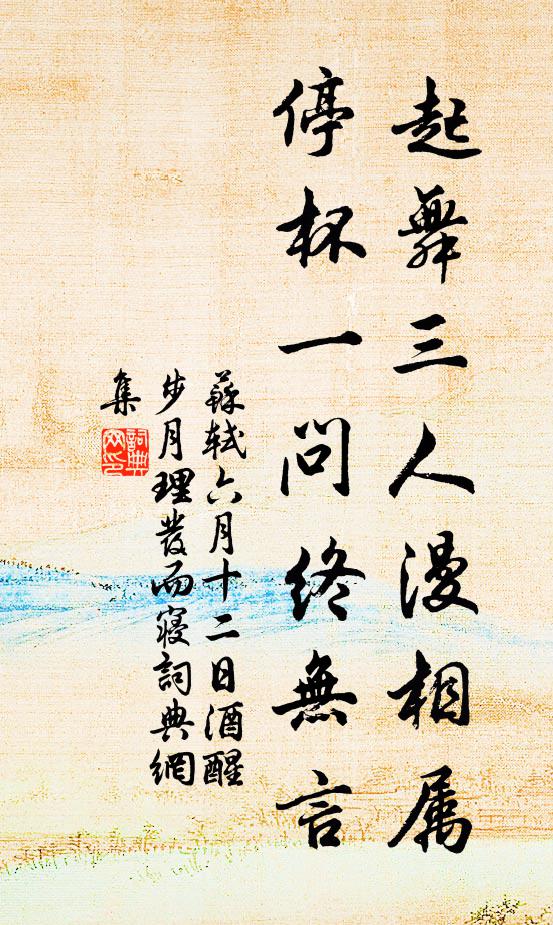 起舞三人漫相属
停杯一問終無言
蘇軾六月十二日酒醒
步月理發而寢詞典網
集
詞典
網印